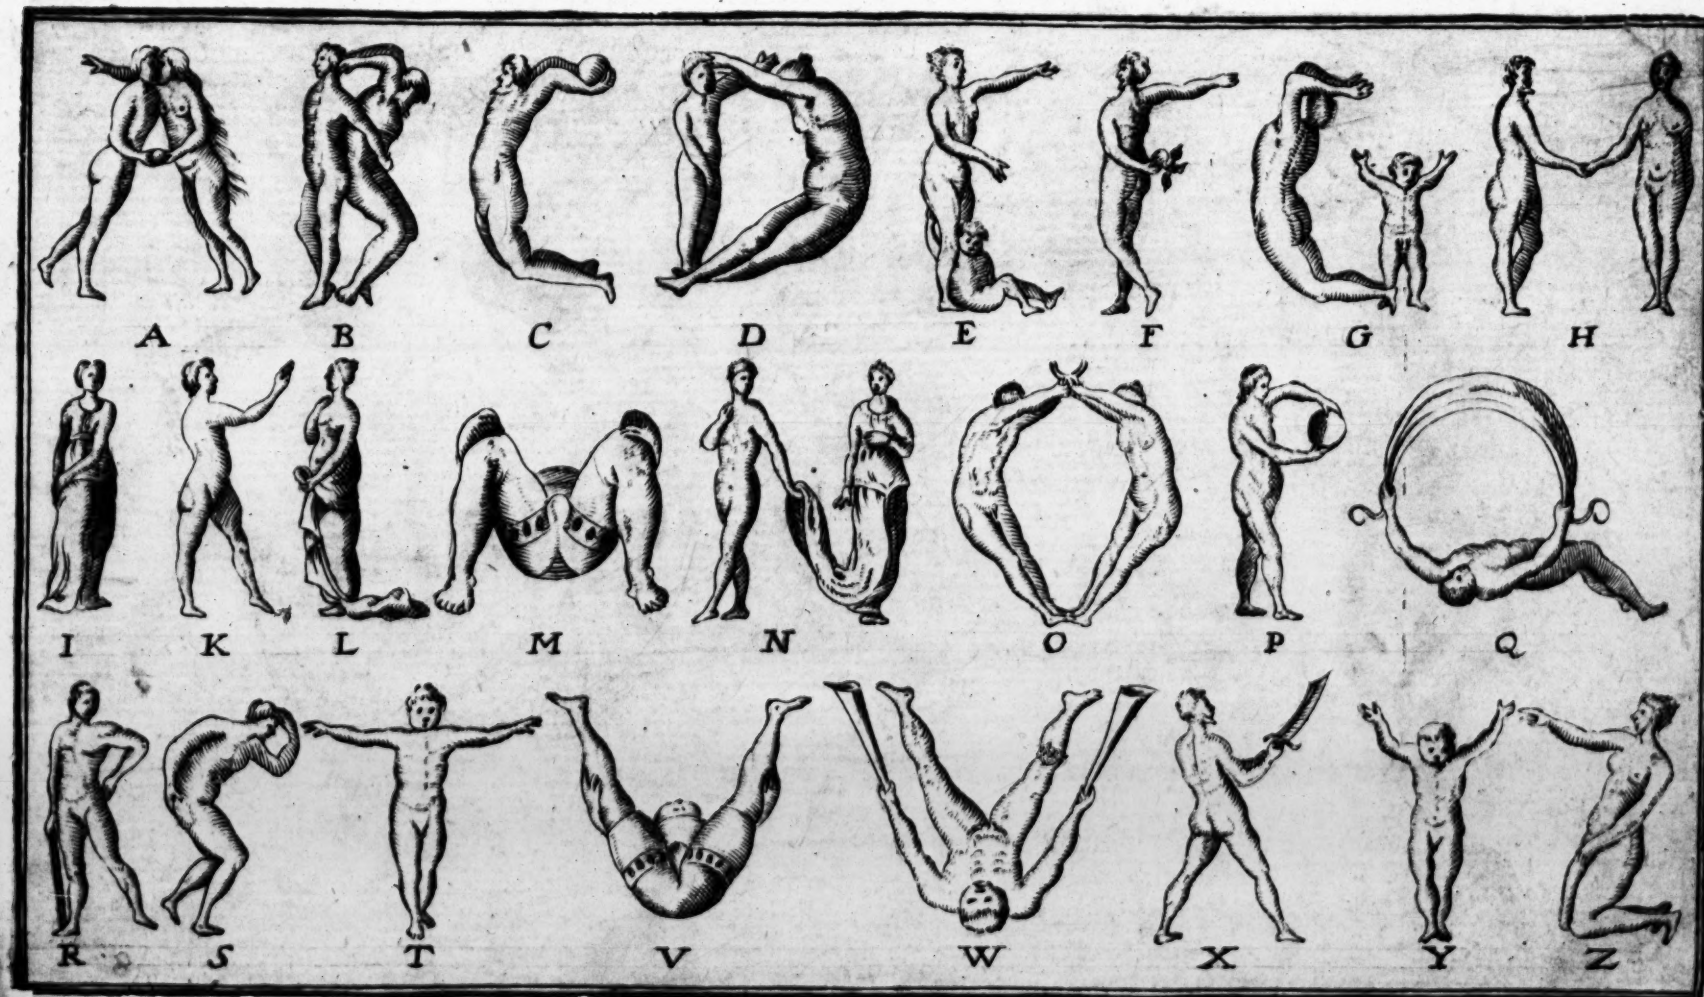 A B C D E F G H
I K L M N O P Q
R S T V W X Y Z